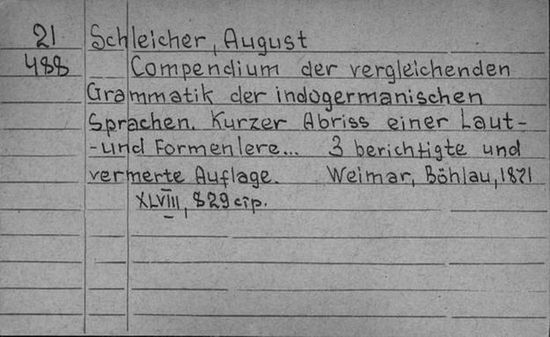 21 Schleicher, August
488 Compendium der vergleichenden
Grammatik der indogermanischen
Sprachen. Kurzer Abriss einer Laut-
-und Formenlere... 3 berichtigte und
vermerte Auflage. Weimar, Böhlau, 1871
XLVIII, 829 cтр.